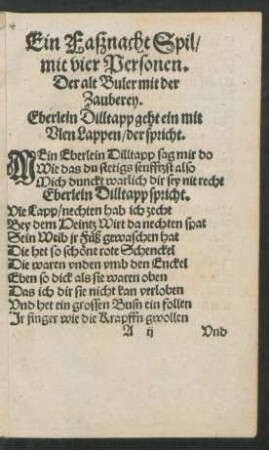 Ein Faßnacht Spil/
mit vier Personen.
Der alt Buler mit der
Zauberey.
Eberlein Dilltapp geht ein mit
Vlen Lappen/der spricht.
MEin Eberlein Dilltapp sag mir do
Wie das du stetigs seufftzst also
Mich dunckt warlich dir sey nit recht
Eberlein Dilltapp spricht.
Vle Lapp/nechten hab ich zecht
Bey dem Heintz Wirt da nechten spat
Sein Weib jr Füß gewaschen hat
Die het so schöne rote Schenckel
Die waren vnden vmb den Enckel
Eben so dick als sie waren oben
Das ich dir sie nicht kan verloben
Vnd het ein grossen Busn ein follen
Ir finger wie die Krapffn gwollen
A ij Vnd